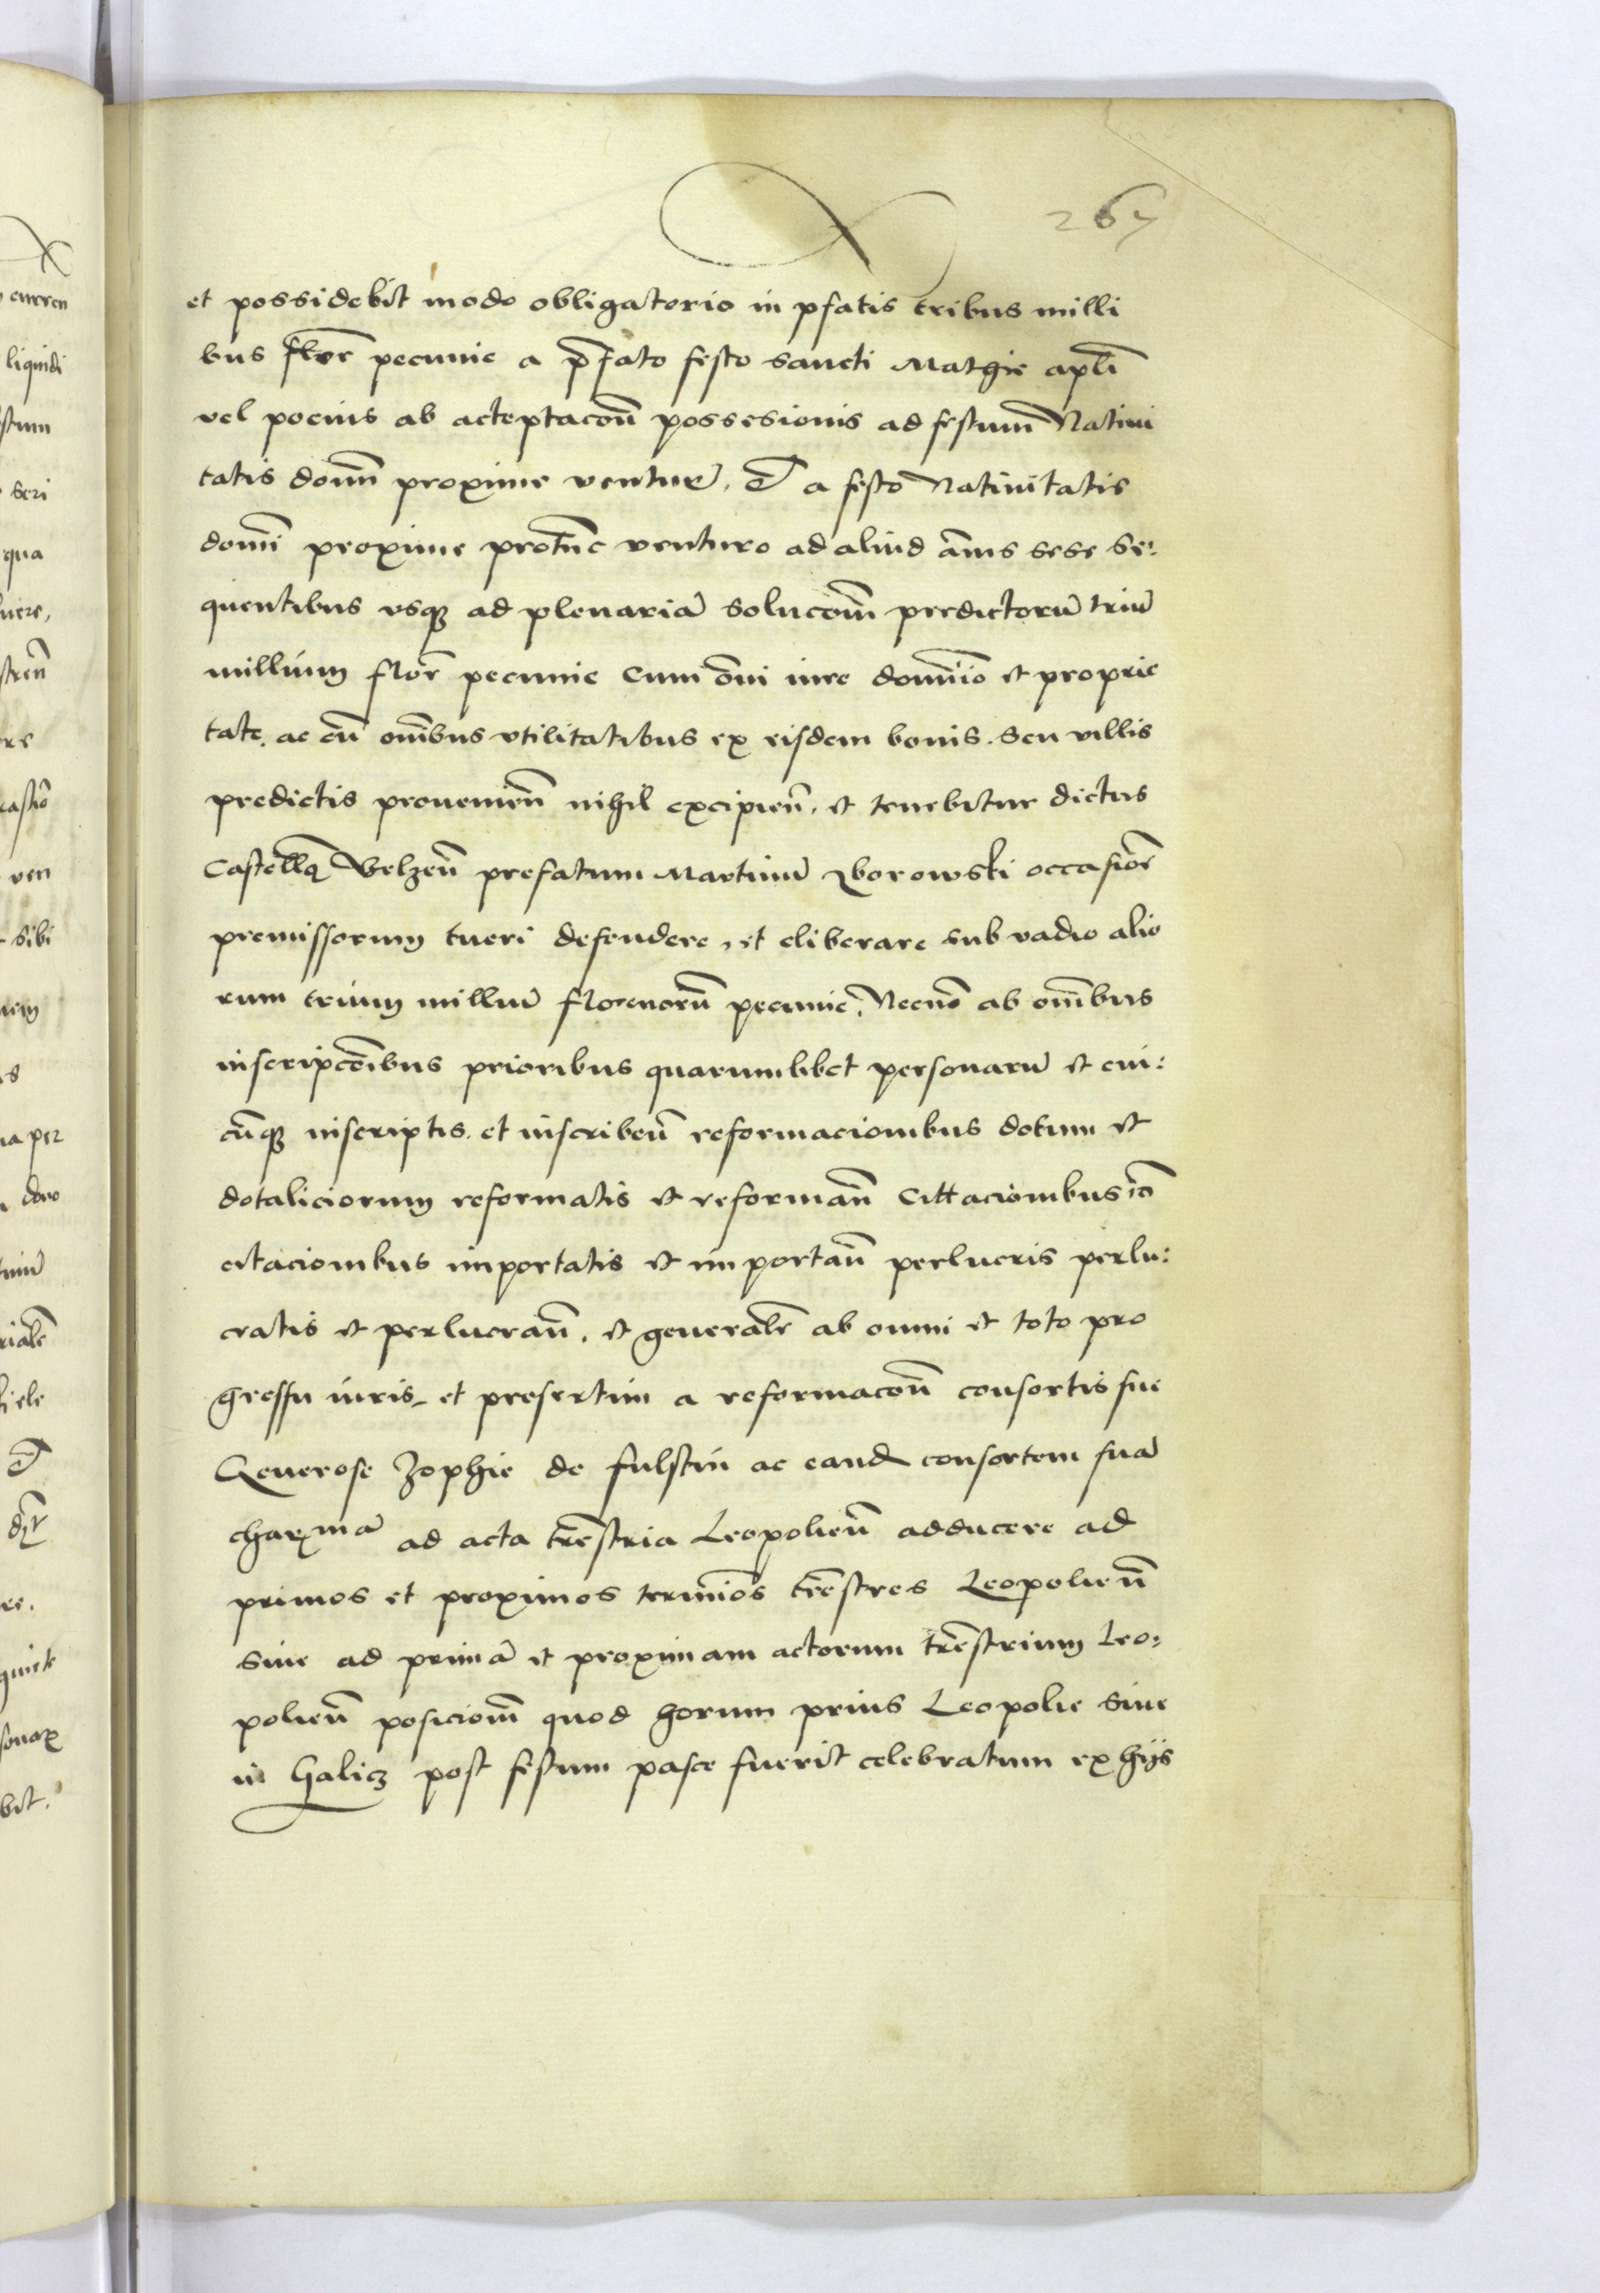 267
et possidebit modo obligatorio in pfatis tribus milli
bus flor̄ pecunie a p̄fato festo sancti Mathie apl̄i
vel pocius ab acceptacoñ possesionis ad festum Nativi
tatis domn̄ proxime ventur̄. Et a festo Nativitatis
domī proxime protunc venturo ad aliud ānis sese se:
quentibus usq ad plenariā solucōem predictorū triū
millium flor̄ pecunie cum ōni iure domīnio et proprie
tate. ac cū om̄ibus utilitatibus ex eisdem bonis. seu villis
predictis provenieñ nihil excipieñ. et tenebitur dictus
Castellaǭ Belzeñ prefatum Martinū Zborowski occasiōe
premissorum tueri defendere, et eliberare sub vadio alio
rum trium milliū florenorū pecunie. Necnō ab om̄ibus
inscripcōibus prioribus quarumlibet personarū et cui:
cūq inscriptis. et inscribeñ reformacionibus dotum et
dotaliciorum reformatis et reformañ Cittacionibus cō
citacionibus importatis et importañ perlucris perlu:
cratis et perlucrañ. et generalē ab omni et toto pro
gressu iuris, et presertim a reformacoñ consortis sue
Generose Zophie de fulstin ac eand consortem suā
charxmā ad acta trēstria Leopolieñ adducere ad
primos et proximos terminōs trēstres Leopolieñ
sive ad primā et proximam actorum trēstrium Leo:
polieñ posicioem̄ quod horum prius Leopolie sive
in Halicz post festum pasce fuerit celebratum ex hijs